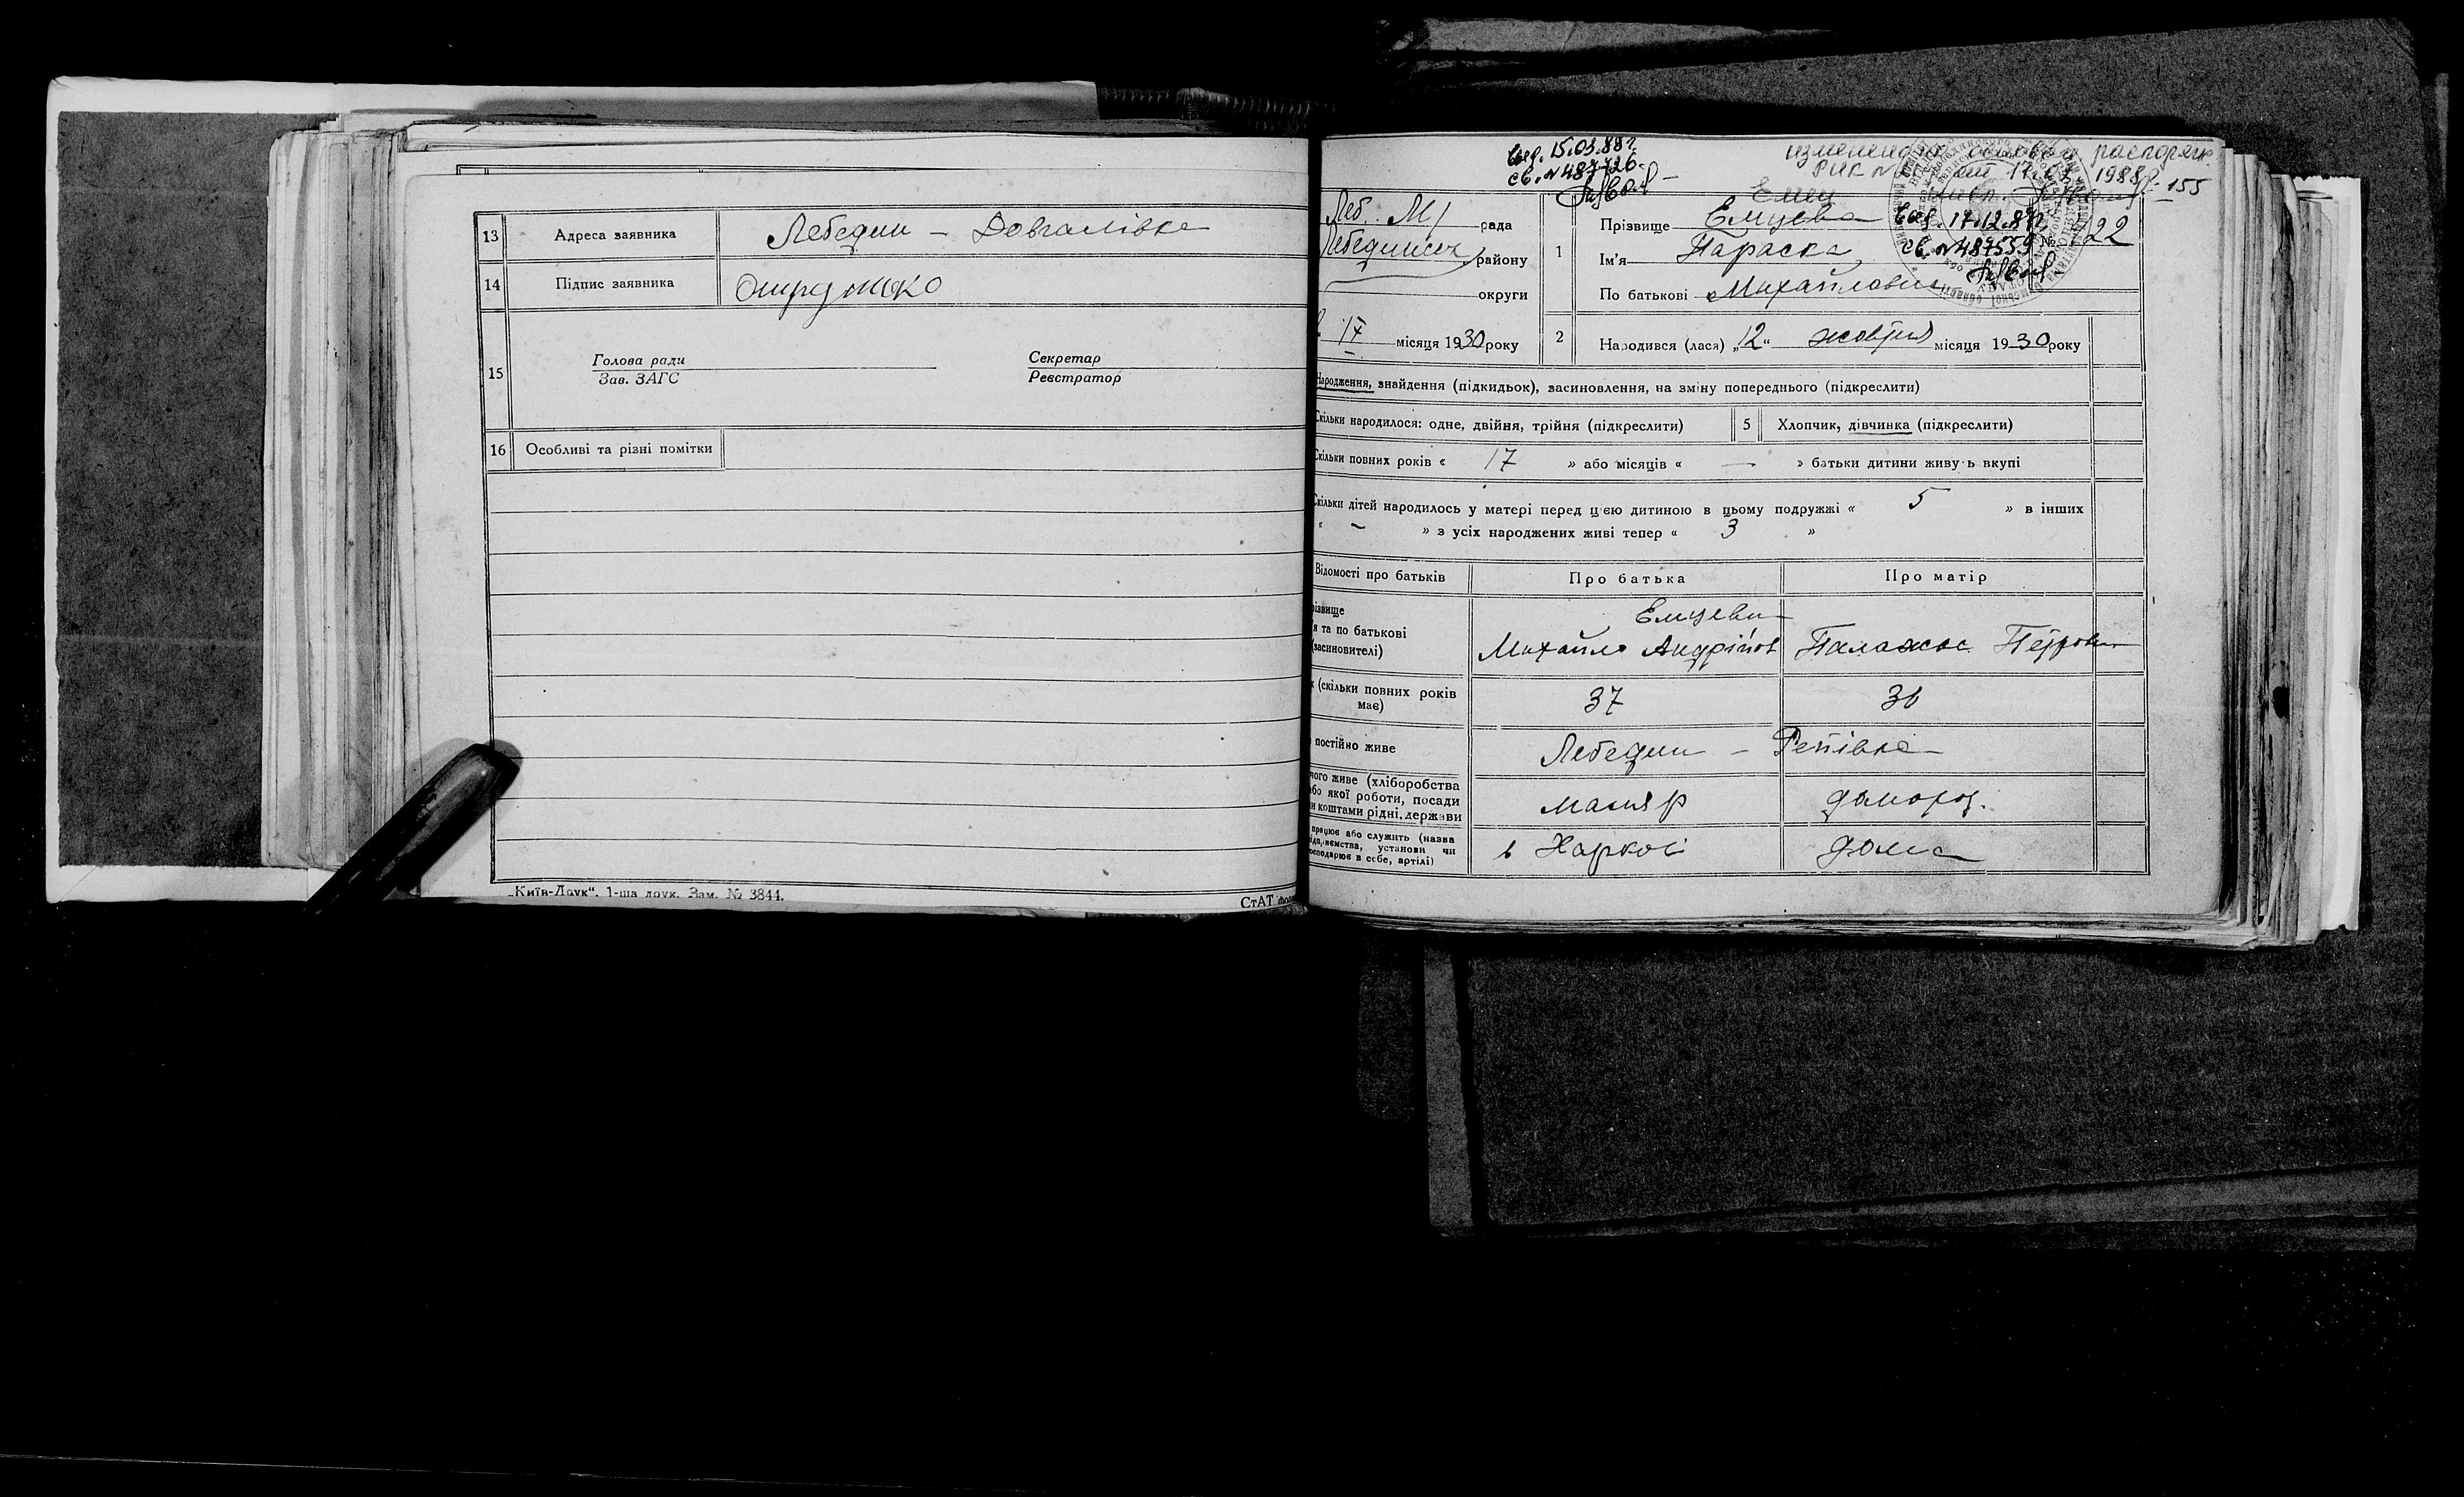 13 Адреса заявника Лебедин – Довгалівка
14 Підпис заявника
15 Голова ради Секретар
Зав. ЗАГС Реєстратор
16 Особливі та різні помітки
„Київ-Друк“. 1-ша друк. Зам. № 3844.
СтАТ
15.03.88г.
св. № 487726
изменена распоряж
РИК № от 17.03. 1988г. 155
Леб. М/ рада
Лебединськ району
округи
IX місяця 1930 року
1 Емец
Прізвище Емцева
17.12.87г.
Ім'я Параска
св. № 487559
№ 22
По батькові Михайлович
2 Народився (лася) „12“ жовтня місяця 1930 року
Народження, знайдення (підкидьок), засиновлення, на зміну попереднього (підкреслити)
Скільки народилося: одне, двійня, трійня (підкреслити) 5 Хлопчик, дівчинка (підкреслити)
Скільки повних років « 17 » або місяців « — » батьки дитини живуть вкупі
Скільки дітей народилось у матері перед цією дитиною в цьому подружжі « 5 » в інших
« – » з усіх народжених живі тепер « 3 »
Відомості про батьків Про батька Про матір
різвище Емцеви
я та по батькові Михайло Андрійов Палажка Петровн
(засиновителі)
(скільки повних років має) 37 36
постійно живе Лебедин – Репівка
чого живе (хліборобства маляр доморог.
або якої роботи, посади
и коштами рідні, держави
працює або служить (назва в Харкові дома
підприємства, установи чи
господарює в себе, артілі)